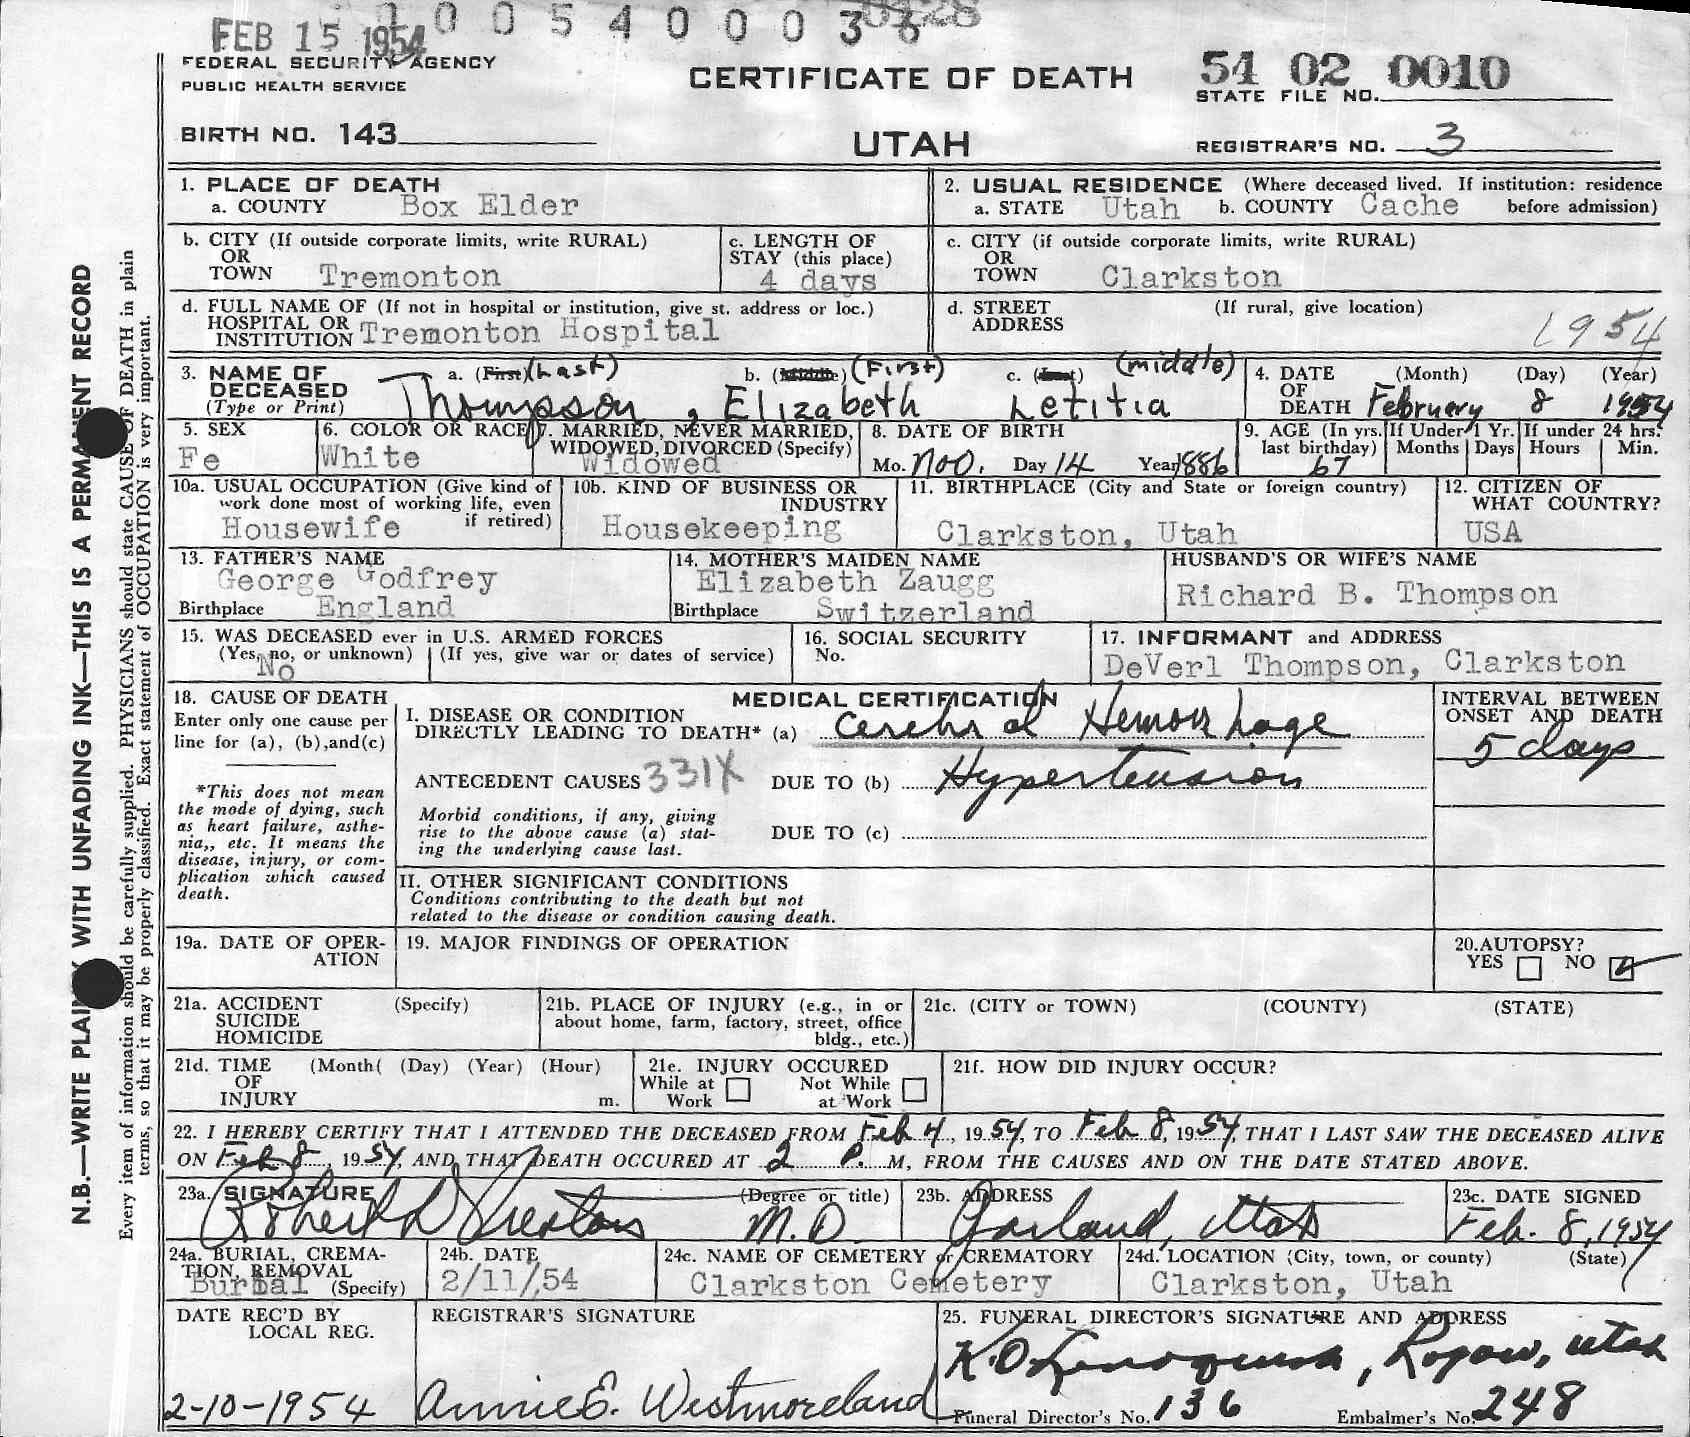 1 0 0 5 4 0 0 0 3 8
FEB 15 1954
FEDERAL SECURITY AGENCY
PUBLIC HEALTH SERVICE
CERTIFICATE OF DEATH
54 02 0010
STATE FILE NO.
BIRTH NO. 143
UTAH
REGISTRAR'S NO. 3
1. PLACE OF DEATH
a. COUNTY Box Elder
2. USUAL RESIDENCE (Where deceased lived. If institution: residence
a. STATE Utah b. COUNTY Cache before admission)
b. CITY (If outside corporate limits, write RURAL)
OR
TOWN Tremonton
c. LENGTH OF
STAY (this place)
4 days
c. CITY (if outside corporate limits, write RURAL)
OR
TOWN Clarkston
d. FULL NAME OF (If not in hospital or institution, give st. address or loc.)
HOSPITAL OR
INSTITUTION Tremonton Hospital
d. STREET (If rural, give location)
ADDRESS
1954
3. NAME OF
DECEASED
(Type or Print)
a. (First) (Last) b. (Middle) (First) c. (Last) (middle)
Thompson, Elizabeth Letitia
4. DATE (Month) (Day) (Year)
OF
DEATH February 8 1954
5. SEX
Fe
6. COLOR OR RACE
White
7. MARRIED, NEVER MARRIED,
WIDOWED, DIVORCED (Specify)
Widowed
8. DATE OF BIRTH
Mo. Nov. Day 14 Year 1886
9. AGE (In yrs. If Under 1 Yr. If under 24 hrs.
last birthday) Months Days Hours Min.
67
10a. USUAL OCCUPATION (Give kind of
work done most of working life, even
if retired)
Housewife
10b. KIND OF BUSINESS OR
INDUSTRY
Housekeeping
11. BIRTHPLACE (City and State or foreign country)
Clarkston, Utah
12. CITIZEN OF
WHAT COUNTRY?
USA
13. FATHER'S NAME
George Godfrey
Birthplace England
14. MOTHER'S MAIDEN NAME
Elizabeth Zaugg
Birthplace Switzerland
HUSBAND'S OR WIFE'S NAME
Richard B. Thompson
15. WAS DECEASED ever in U.S. ARMED FORCES
(Yes, no, or unknown) (If yes, give war or dates of service)
No
16. SOCIAL SECURITY
No.
17. INFORMANT and ADDRESS
DeVerl Thompson, Clarkston
18. CAUSE OF DEATH
Enter only one cause per
line for (a), (b),and(c)
*This does not mean
the mode of dying, such
as heart failure, asthe-
nia,, etc. It means the
disease, injury, or com-
plication which caused
death.
MEDICAL CERTIFICATION
I. DISEASE OR CONDITION
DIRECTLY LEADING TO DEATH* (a) Cerebral Hemorrhage
ANTECEDENT CAUSES 331X DUE TO (b) Hypertension
Morbid conditions, if any, giving
rise to the above cause (a) stat-
ing the underlying cause last.
DUE TO (c)
INTERVAL BETWEEN
ONSET AND DEATH
5 days
II. OTHER SIGNIFICANT CONDITIONS
Conditions contributing to the death but not
related to the disease or condition causing death.
19a. DATE OF OPER-
ATION
19. MAJOR FINDINGS OF OPERATION
20.AUTOPSY?
YES NO
21a. ACCIDENT (Specify)
SUICIDE
HOMICIDE
21b. PLACE OF INJURY (e.g., in or
about home, farm, factory, street, office
bldg., etc.)
21c. (CITY or TOWN) (COUNTY) (STATE)
21d. TIME (Month( (Day) (Year) (Hour)
OF
INJURY m.
21e. INJURY OCCURED
While at Not While
Work at Work
21f. HOW DID INJURY OCCUR?
22. I HEREBY CERTIFY THAT I ATTENDED THE DECEASED FROM Feb 4, 1954, TO Feb 8, 1954, THAT I LAST SAW THE DECEASED ALIVE
ON Feb 8, 1954, AND THAT DEATH OCCURED AT 2 P. M, FROM THE CAUSES AND ON THE DATE STATED ABOVE.
23a. SIGNATURE (Degree or title)
Robert D Preston M.D.
23b. ADDRESS
Garland, Utah
23c. DATE SIGNED
Feb. 8, 1954
24a. BURIAL, CREMA-
TION, REMOVAL
Burial (Specify)
24b. DATE
2/11/54
24c. NAME OF CEMETERY or CREMATORY
Clarkston Cemetery
24d. LOCATION (City, town, or county) (State)
Clarkston, Utah
DATE REC'D BY
LOCAL REG.
2-10-1954
REGISTRAR'S SIGNATURE
Annie E. Westmoreland
25. FUNERAL DIRECTOR'S SIGNATURE AND ADDRESS
Logan, Utah
Funeral Director's No. 136 Embalmer's No. 248
N.B.—WRITE WITH UNFADING INK—THIS IS A RECORD
Every item of information should be carefully supplied. PHYSICIANS should state CAUSE OF DEATH in plain
terms, so that it may be properly classified. Exact statement of OCCUPATION is very important.